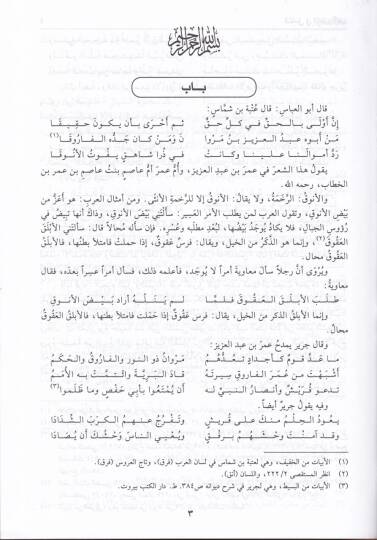 بسم الله الرحمن الرحيم
باب
قال أبو العباس: قال عُتْبة بن شمَّاس:
إنَّ أَوْلَى بالحقِّ في كلِّ حقٍّ ثم أَحْرَى بأن يكونَ حقيقَا
مَنْ أبوه عبدُ العزيز بنُ مَرْوا نَ ومَنْ كان جَدُّه الفارُوقَا(١)
رَدَّ أموالَنا علينا وكانتْ في ذُرا شاهقٍ يفُوتُ الأنُوقَا
يقول هذا الشعرَ في عمرَ بن عبدِ العزيز، وأمُّ عمرَ أمُّ عاصمٍ بنتُ عاصمِ بن عمر بن
الخطاب، رحمه الله.
والأنوقُ: الرَّخَمَةُ، ولا يقالُ: الأنوقُ إلا للرَّخمةِ الأنثَى. ومن أمثال العرب: هو أعَزُّ من
بَيْضِ الأنوقِ، وتقول العرب لمن يطلب الأمر العَسِير: سألتَني بَيْضَ الأنوقِ، وذاكَ أنها تَبيضُ في
رؤوسِ الجبالِ، فلا يكادُ يُوجَدُ بَيْضُها، لبُعْدِ مطلَبِه وعُسْرِه. فإن سألَه مُحالاً قال: سألتَني الأبْلَقَ
العَقُوقَ(٢)، وإنما هو الذَّكرُ من الخيل، ويقال: فرسٌ عَقوقٌ، إذا حملتْ فامتلأ بطنُها، فالأبلَقُ
العَقُوقُ محال.
ويُرْوَى أنَّ رجلاً سألَ معاويةَ أمراً لا يُوجَد، فأعلمه ذلك، فسأل أمراً عسيراً بعدَه، فقال
معاويةُ:
طَلَبَ الأبلَقَ العَقُوقَ فلمَّا لم يَنَلْهُ أراد بَيْضَ الأنوقِ
وإنما الأبلقُ الذكر من الخيل، يقال: فرس عَقُوقٌ إذا حَمَلت فامتلأ بطنها، فالأبلقُ العَقُوقُ
محال.
وقال جرير يمدحُ عمرَ بن عبد العزيز:
ما عَدَّ قومٌ كأجدادٍ تَعُدُّهُمُ مَرْوانُ ذو النورِ والفاروقُ والحكَمُ
أشبَهْتَ من عُمَرَ الفاروقِ سِيرَتَه قادَ البَرِيَّةَ وائتمَّتْ به الأُمَمُ
تدعو قُرَيشٌ وأنصارُ النبيِّ له أن يُمْتَعُوا بأبي حَفْصٍ وما ظَلَموا(٣)
وفيه يقول جرير أيضاً:
يعودُ الحِلْمُ منكَ على قُريشٍ وتَفْرُجُ عنهمُ الكُرَبَ الشِّدادَا
وقد آمَنْتَ وَحْشَهُمُ برِفْقٍ ويُعْيي الناسَ وَحْشُكَ أن يُصَادَا
(١) الأبيات من الخفيف، وهي لعتبة بن شماس في لسان العرب (فرق)، وتاج العروس (فرق).
(٢) انظر المستقصى ٢/٢٢٢، واللسان (أنق).
(٣) الأبيات من البسيط، وهي لجرير في شرح ديوانه ص٣٨٤. ط. دار الكتب بيروت.
٣